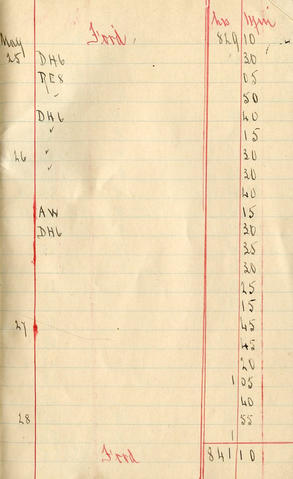 hrs Min
May Ford 829 10
25 DH6 30
RE8 05
" 50
DH6 40
" 15
26 " 30
" 30
40
AW 15
DH6 30
35
30
25
15
27 45
45
20
1 05
40
28 55
1
Ford 841 10